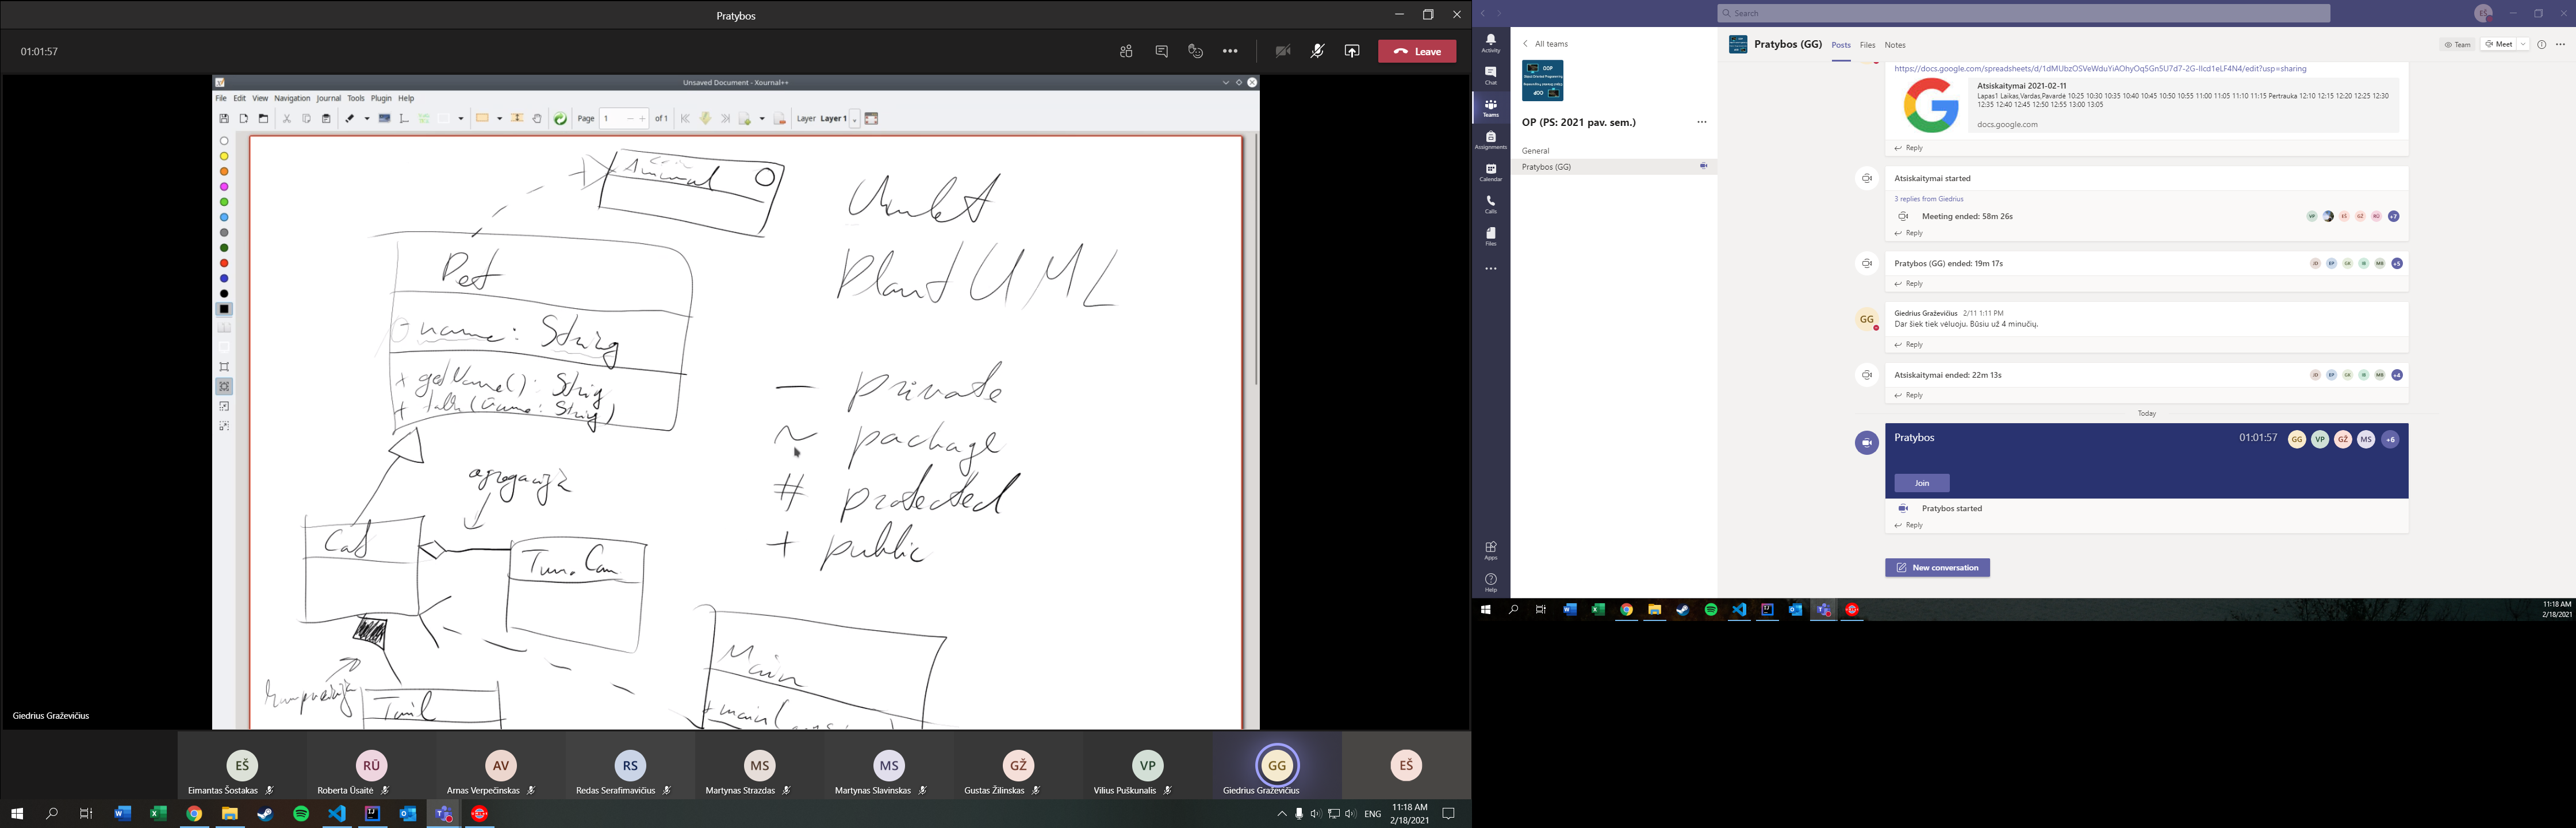 Pratybos
01:01:57
Leave
Unsaved Document - Xournal++
File Edit View Navigation Journal Tools Plugin Help
Page 1 of 1 Layer Layer 1
Animal
Umlet
Plant UML
Pet
- name: String
+ getName(): String
+ talk(name: String)
- private
~ package
# protected
+ public
agregacija
Cat
Tuna Can
Main
+ main(
kompozicija
Tail
Giedrius Graževičius
EŠ RŪ AV RS MS MS GŽ VP GG EŠ
Eimantas Šostakas Roberta Ūsaitė Arnas Verpečinskas Redas Serafimavičius Martynas Strazdas Martynas Slavinskas Gustas Žilinskas Vilius Puškunalis Giedrius Graževičius
ENG
11:18 AM
2/18/2021
Search
EŠ
Activity
Chat
Teams
Assignments
Calendar
Calls
Files
Apps
Help
All teams
OOP
OP (PS: 2021 pav. sem.)
General
Pratybos (GG)
Pratybos (GG) Posts Files Notes
Team Meet
https://docs.google.com/spreadsheets/d/1dMUbzOSVeWduYiAOhyOq5Gn5U7d7-2G-Ilcd1eLF4N4/edit?usp=sharing
Atsiskaitymai 2021-02-11
Lapas1 Laikas,Vardas,Pavardė 10:25 10:30 10:35 10:40 10:45 10:50 10:55 11:00 11:05 11:10 11:15 Pertrauka 12:10 12:15 12:20 12:25 12:30
12:35 12:40 12:45 12:50 12:55 13:00 13:05
docs.google.com
Reply
Atsiskaitymai started
3 replies from Giedrius
Meeting ended: 58m 26s
VP EŠ GŽ RŪ +7
Reply
Pratybos (GG) ended: 19m 17s
JD BP GK IB MB +5
Reply
GG
Giedrius Graževičius 2/11 1:11 PM
Dar šiek tiek vėluoju. Būsiu už 4 minučių.
Reply
Atsiskaitymai ended: 22m 13s
JD BP GK IB MB +4
Reply
Today
Pratybos
01:01:57 GG VP GŽ MS +6
Join
Pratybos started
Reply
New conversation
11:18 AM
2/18/2021